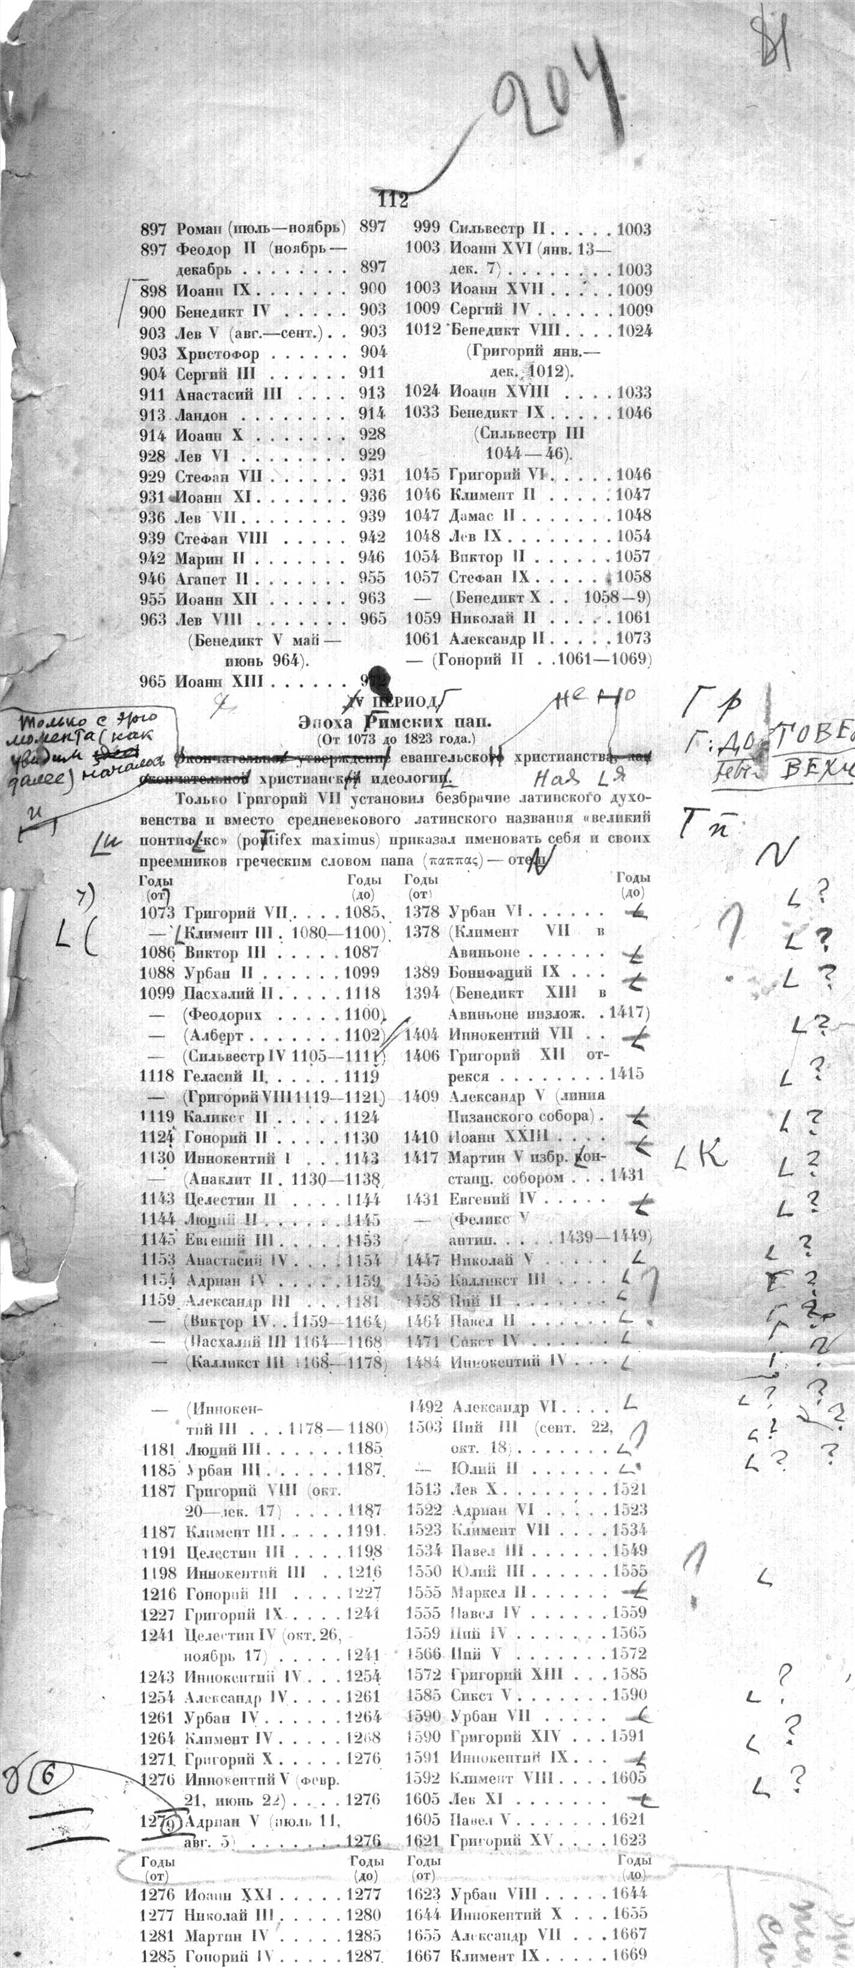 204
112
897 Роман (июль—ноябрь) 897
897 Феодор II (ноябрь—
декабрь . . . . . . . . 897
898 Иоанн IX . . . . . . . 900
900 Бенедикт IV . . . . . 903
903 Лев V (авг.—сент.) . . 903
903 Христофор . . . . . . 904
904 Сергий III . . . . . . 911
911 Анастасий III . . . . 913
913 Ландон . . . . . . . . 914
914 Иоанн X . . . . . . . 928
928 Лев VI . . . . . . . . 929
929 Стефан VII . . . . . . 931
931 Иоанн XI . . . . . . . 936
936 Лев VII . . . . . . . . 939
939 Стефан VIII . . . . . 942
942 Марин II . . . . . . . 946
946 Агапет II . . . . . . . 955
955 Иоанн XII . . . . . . 963
963 Лев VIII . . . . . . . 965
(Бенедикт V май—
июнь 964).
965 Иоанн XIII . . . . .
999 Сильвестр II . . . . . 1003
1003 Иоанн XVI (янв. 13—
дек. 7) . . . . . . . . 1003
1003 Иоанн XVII . . . . . 1009
1009 Сергий IV . . . . . . 1009
1012 Бенедикт VIII . . . . 1024
(Григорий янв.—
дек. 1012).
1024 Иоанн XVIII . . . . 1033
1033 Бенедикт IX . . . . . 1046
(Сильвестр III
1044—46).
1045 Григорий VI . . . . . 1046
1046 Климент II . . . . . 1047
1047 Дамас II . . . . . . . 1048
1048 Лев IX . . . . . . . . 1054
1054 Виктор II . . . . . . 1057
1057 Стефан IX . . . . . . 1058
— (Бенедикт X . . 1058—9)
1059 Николай II . . . . . 1061
1061 Александр II . . . . 1073
— (Гонорий II . . 1061—1069)
IV ПЕРИОД
Эпоха Римских пап.
(От 1073 до 1823 года.)
не но
Только с этого
момента (как
увидим
далее) началось
и
Окончательное утверждение евангельского христианства, как
окончательной христианской идеологии
ная
я
Только Григорий VII установил безбрачие латинского духо-
венства и вместо средневекового латинского названия «великий
понтифекс» (pontifex maximus) приказал именовать себя и своих
преемников греческим словом папа (παππας) — отец
Годы
(от)
Годы
(до)
1073 Григорий VII . . . . 1085
— (Климент III . 1080—1100)
1086 Виктор III . . . . . 1087
1088 Урбан II . . . . . . 1099
1099 Пасхалий II . . . . . 1118
— (Феодорих . . . . . 1100)
— (Алберт . . . . . . 1102)
— (Сильвестр IV 1105—1111)
1118 Геласий II . . . . . . 1119
— (Григорий VIII 1119—1121)
1119 Каликст II . . . . . 1124
1124 Гонорий II . . . . . 1130
1130 Иннокентий I . . . 1143
— (Анаклит II . 1130—1138
1143 Целестин II . . . . 1144
1144 Люций II . . . . . . 1145
1145 Евгений III . . . . . 1153
1153 Анастасий IV . . . . 1154
1154 Адриан IV . . . . . 1159
1159 Александр III . . . 1181
— (Виктор IV . . 1159—1164)
— (Пасхалий III 1164—1168)
— (Калликст III 1168—1178)
— (Иннокен-
тий III . . . 1178—1180)
1181 Люций III . . . . . . 1185
1185 Урбан III . . . . . . 1187
1187 Григорий VIII (окт.
20—дек. 17) . . . . 1187
1187 Климент III . . . . . 1191
1191 Целестин III . . . . 1198
1198 Иннокентий III . . 1216
1216 Гонорий III . . . . 1227
1227 Григорий IX . . . . 1241
1241 Целестин IV (окт. 26,
ноябрь 17) . . . . . 1241
1243 Иннокентий IV . . . 1254
1254 Александр IV . . . . 1261
1261 Урбан IV . . . . . . 1264
1264 Климент IV . . . . . 1268
1271 Григорий X . . . . . 1276
1276 Иннокентий V (февр.
21, июнь 22) . . . . 1276
6
1279 Адриан V (июль 11,
авг. 5) . . . . . . . 1276
Годы
(от)
Годы
(до)
1276 Иоанн XXI . . . . . 1277
1277 Николай III . . . . . 1280
1281 Мартин IV . . . . . 1285
1285 Гонорий IV . . . . . 1287
Годы
(от)
Годы
(до)
1378 Урбан VI . . . . . .
1378 (Климент VII в
Авиньоне . . . . . .
1389 Бонифаций IX . . .
1394 (Бенедикт XIII в
Авиньоне низлож. . 1417)
1404 Иннокентий VII . .
1406 Григорий XII от-
рекся . . . . . . . . 1415
1409 Александр V (линия
Пизанского собора) .
1410 Иоанн XXIII . . . .
1417 Мартин V избр. кон-
станц. собором . . . 1431
1431 Евгений IV . . . . .
— (Феликс V
антип. . . . . 1439—1449)
1447 Николай V . . . . .
1455 Калликст III . . . .
1458 Пий II . . . . . . .
1464 Павел II . . . . . .
1471 Сикст IV . . . . . .
1484 Иннокентий IV . . .
1492 Александр VI . . . .
1503 Пий III (сент. 22,
окт. 18) . . . . . .
— Юлий II . . . . . .
1513 Лев X . . . . . . . . 1521
1522 Адриан VI . . . . . 1523
1523 Климент VII . . . . 1534
1534 Павел III . . . . . . 1549
1550 Юлий III . . . . . . 1555
1555 Маркел II . . . . . .
1555 Павел IV . . . . . . 1559
1559 Пий IV . . . . . . . 1565
1566 Пий V . . . . . . . 1572
1572 Григорий XIII . . . 1585
1585 Сикст V . . . . . . . 1590
1590 Урбан VII . . . . .
1590 Григорий XIV . . . 1591
1591 Иннокентий IX . . .
1592 Климент VIII . . . . 1605
1605 Лев XI . . . . . . .
1605 Павел V . . . . . . . 1621
1621 Григорий XV . . . . 1623
Годы
(от)
Годы
(до)
1623 Урбан VIII . . . . . 1644
1644 Иннокентий X . . . 1655
1655 Александр VII . . . 1667
1667 Климент IX . . . . . 1669